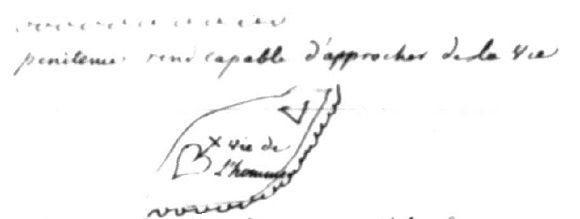 penitence rend capable d'approcher de la vie
x vie de
l'homme